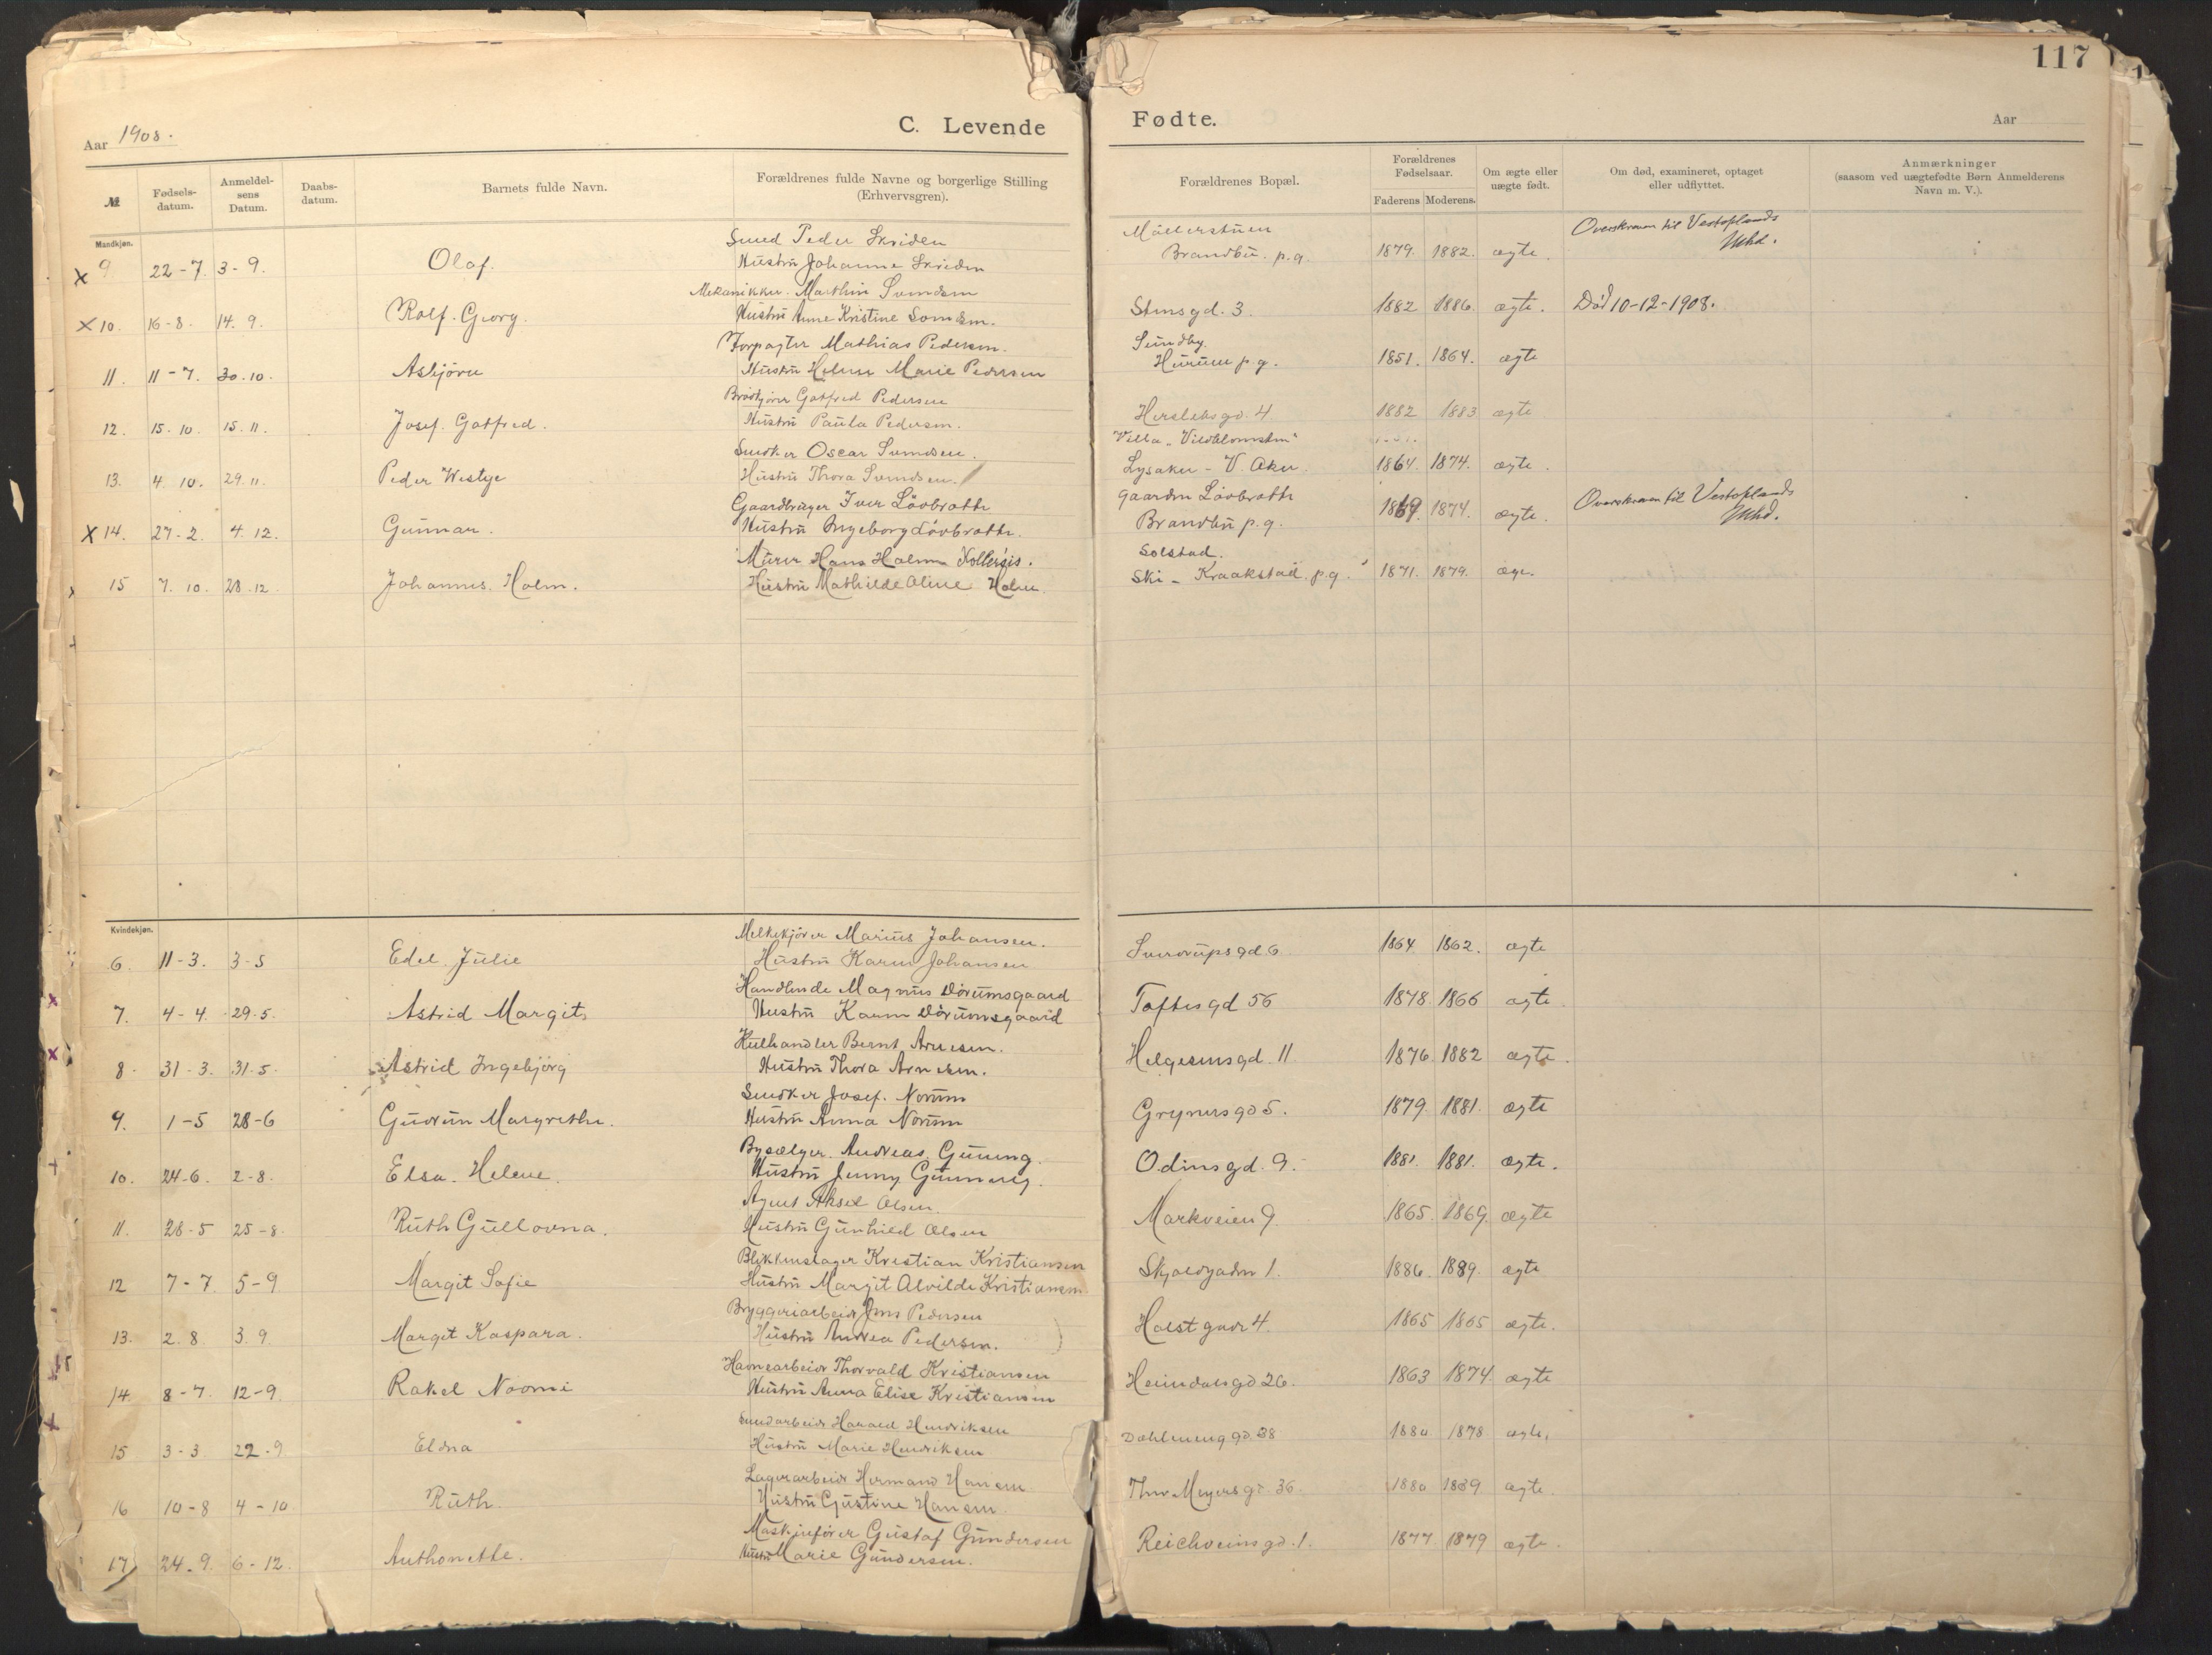 117
Aar 1908.
C. Levende Fødte.
Aar
№
Fødsels-datum.
Anmeldel-sens Datum.
Daabs-datum.
Barnets fulde Navn.
Forældrenes fulde Navne og borgerlige Stilling (Erhvervsgren).
Forældrenes Bopæl.
Forældrenes Fødselsaar.
Faderens Moderens.
Om ægte eller uægte født.
Om død, examineret, optaget eller udflyttet.
Anmærkninger (saasom ved uægtefødte Børn Anmelderens Navn m. V.).
Mandkjøn.
Smed Peder Skriden Møllerstuen Overskreven til Vestoplands
x 9 22-7. 3-9. Olaf. Hustru Johanne Skriden Brandbu. p.g. 1879. 1882. ægte. Mhd.
Mekaniker. Marthin Svendsen
x 10. 16-8. 14.9. Rolf. Georg. Hustru Anne Kristine Svendsen. Stensgd. 3. 1882 1886. ægte. Død 10-12-1908.
Forpagter Mathias Pedersen. Sundby.
11. 11-7. 30.10. Asbjørn Hustru Helene Marie Pedersen Hurum p.g. 1851. 1864. ægte
Brødkjører Gotfred Pedersen
12. 15.10. 15.11. Josef. Gotfred. Hustru Paula Pedersen. Herslebsgd. 4. 1882 1883 ægte
Snedker Oscar Svendsen. Villa "Vildblomsten"
13. 4.10. 29.11. Peder Westye Hustru Thora Svendsen. Lysaker - V. Aker. 1864. 1874. ægte.
Gaardbruger Iver Løvbrøtte Gaarden Løvbrøtte Overskreven til Vestoplands
x 14. 27-2. 4.12. Gunnar. Hustru Ingeborg Løvbrøtte. Brandbu p.g. 1869. 1874. ægte. Mhd.
Murer Hans Holm Solstad.
15 7.10. 28.12. Johannes. Holm. Hustru Mathilde Oline Holm. Ski - Kraakstad. p.g. 1871. 1879. ægte.
Kvindekjøn.
Melkekjører Marius Johansen.
6. 11-3. 3-5 Edel. Julie Hustru Karen Johansen Sverdrupsgd 6 1864 1862. ægte
Handlende Magnus Dørumsgaard
7. 4-4. 29-5. Astrid Margit Hustru Karen Dørumsgaard Toftesgd 56 1878. 1866 ægte
Kulhandler Bernt Arnesen.
8. 31-3. 31-5. Astrid Ingebjørg Hustru Thora Arnesen. Helgesensgd. 11. 1876. 1882 ægte.
Snedker Josef. Norum
9. 1-5 28-6 Gudrun Margrethe. Hustru Anna Norum Grynersgd 5. 1879. 1881. ægte
Andreas.
10. 24-6. 2-8. Elsa. Helene. Hustru Jenny Odinsgd. 9. 1881. 1881. ægte.
Agent Aksel Olsen.
11. 28-5 25-8. Ruth Gullovna. Hustru Gunhild Olsen Markveien 9. 1865. 1869. ægte
Blikkenslager Kristian Kristiansen
12 7-7. 5-9 Margit Sofie Hustru Margit Alvilde Kristiansen Skjoldgaden 1. 1886. 1889. ægte
Bryggeriarbeider Jens Pedersen
13. 2.8. 3.9 Margit Kaspara. Hustru Andrea Pedersen. Holstgade 4. 1865 1865 ægte.
Havnearbeider Thorvald Kristiansen
14. 8-7. 12-9. Rakel Noomi Hustru Anna Elise Kristiansen Heimdalsgd 26. 1863 1874. ægte
Harald Hendriksen
15 3-3. 22-9 Eldna Hustru Marie Hendriksen Dahlenenggd. 38 1880 1878 ægte.
Lagerarbeider Hermand Hansen
16 10-8 4-10 Ruth. Hustru Gustine Hansen. Thv. Meyersgd. 36. 1880 1889 ægte.
Maskinfører Gustaf Gundersen
17. 24-9. 6-12. Anthonette. Hustru Marie Gundersen. Reichweinsgd. 1. 1877 1879 ægte.